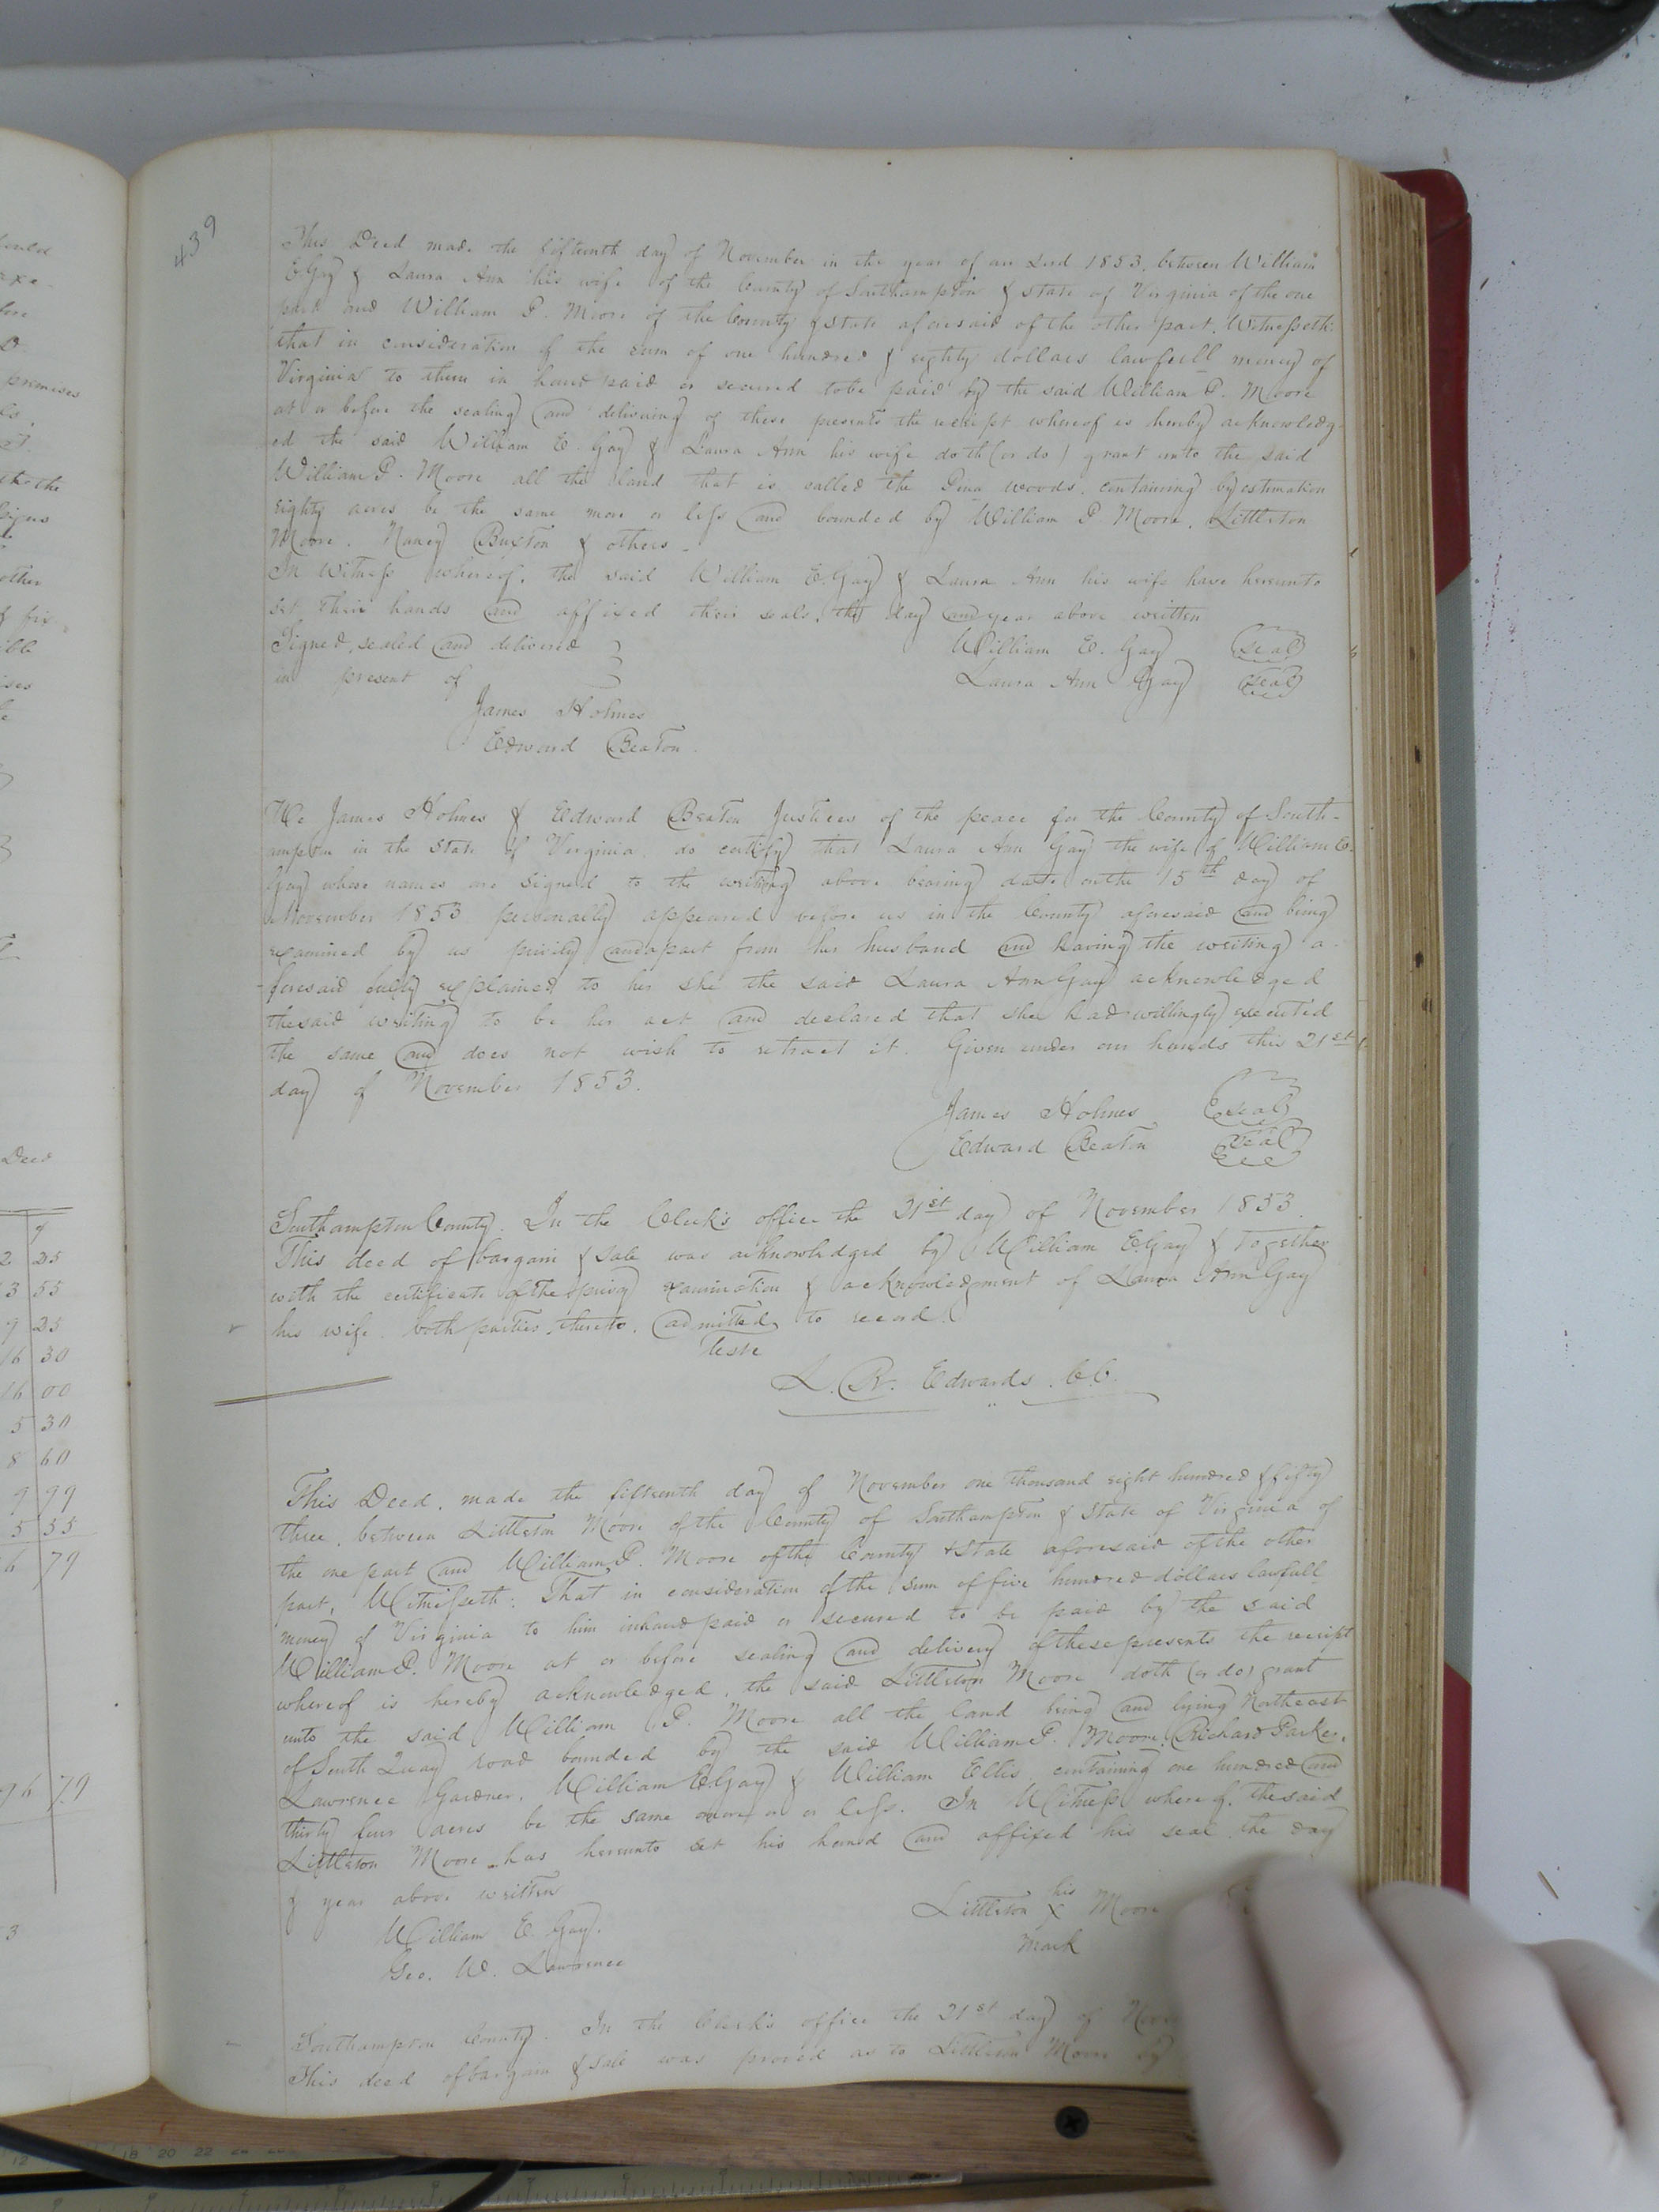 439
This Deed made the fifteenth day of November in the year of our Lord 1853. between William
E Gay & Laura Ann his wife of the County of Southampton & state of Virginia of the one
part and William P. Moore of the County & state aforesaid of the other part. Witnesseth
that in consideration of the sum of one hundred & eighty dollars lawfull money of
Virginia to them in hand paid or secured to be paid by the said William P. Moore
at or before the sealing and delivering of these presents the receipt whereof is hereby acknowledg-
ed the said William E. Gay & Laura Ann his wife doth (or do) grant unto the said
William P. Moore all the land that is called the Piny woods. containing by estimation
eighty acres be the same more or less and bounded by William P. Moore, Littleton
Moore. Nancy Buxton & others.
In Witness whereof, the said William E. Gay & Laura Ann his wife have hereunto
set their hands and affixed their seals, the day and year above written
Signed, sealed and delivered } William E. Gay (seal)
in present of } Laura Ann Gay (seal)
James Holmes
Edward Beaton.
We James Holmes & Edward Beaton Justices of the peace for the County of South-
ampton in the State of Virginia. do certify that Laura Ann Gay the wife of William E.
Gay whose names are signed to the writing above bearing date on the 15th day of
November 1853 personally appeared before us in the County aforesaid and being
examined by us privily and apart from her husband and having the writing a-
foresaid fully explained to her she the said Laura Ann Gay acknowledged
the said writing to be her act and declared that she had willingly executed
the same and does not wish to retract it. Given under our hands this 21st
day of November 1853.
James Holmes (seal)
Edward Beaton (seal)
Southampton County. In the Clerk's office the 21st day of November 1853.
This deed of bargain & sale was acknowledged by William E. Gay & together
with the certificate of the privy examination & acknowledgment of Laura Ann Gay
his wife. both parties thereto. admitted to record.
Teste
L. R. Edwards. CC.
This Deed. made the fifteenth day of November one thousand eight hundred & fifty
three. between Littleton Moore of the County of Southampton & State of Virginia of
the one part and William P. Moore of the County & State aforesaid of the other
part, Witnesseth: That in consideration of the sum of five hundred dollars lawfull
money of Virginia to him in hand paid or secured to be paid by the said
William P. Moore at or before sealing and delivery of these presents the receipt
whereof is hereby acknowledged, the said Littleton Moore doth (or do) grant
unto the said William P. Moore all the land being and lying Northeast
of South Quay road bounded by the said William P. Moore, Richard Parker,
Lawrence Gardner, William E Gay & William Ellis containing one hundred and
thirty four acres be the same more or less. In Witness whereof. the said
Littleton Moore has hereunto set his hand and affixed his seal the day
& year above written
William E. Gay. Littleton his X Moore
Geo. W. Lawrence mark
Southampton County. In the Clerk's office the 21st day of
This deed of bargain & sale was proved as to Littleton Moore by